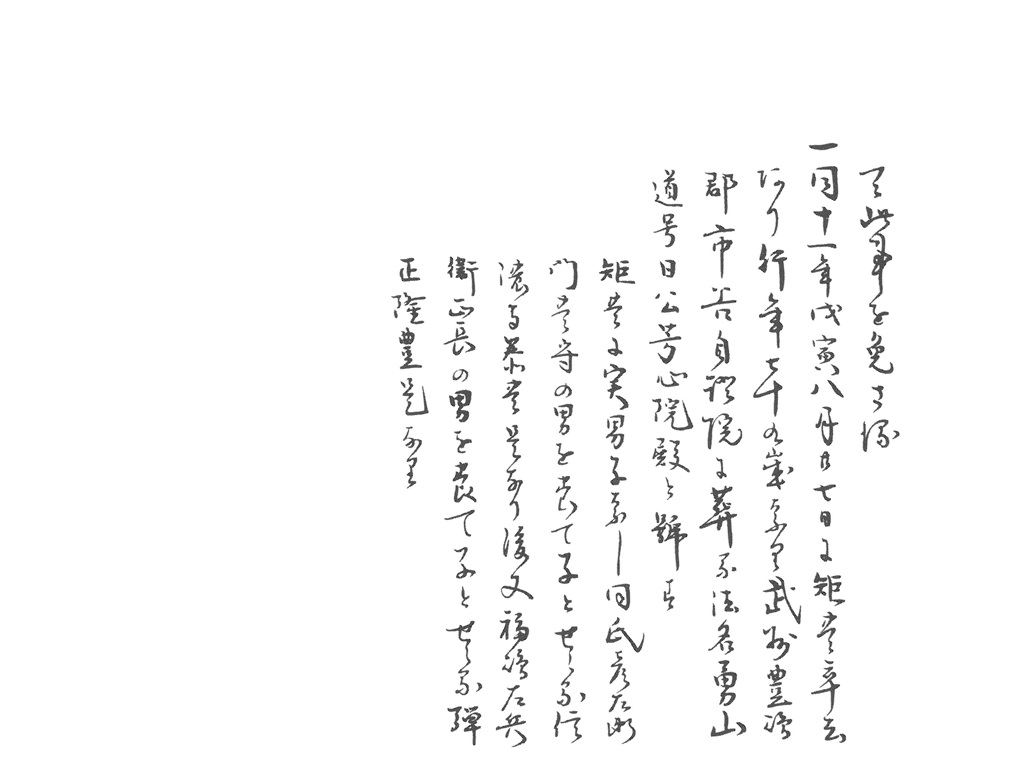 て此事を免さ
一同十一年戊寅八月廿七日に矩豊卒去
あり行年七十九歳なり武州豊嶋
郡市谷自證院に葬る法名勇山
道号日公号心院殿と號す
矩豊に実男子なし同氏彦左衛
門豊守の男を養て子とせらる信
濃守泰豊是なり後又福嶋左兵
衛正長の男を養て子とせらる弾
正隆豊是なり